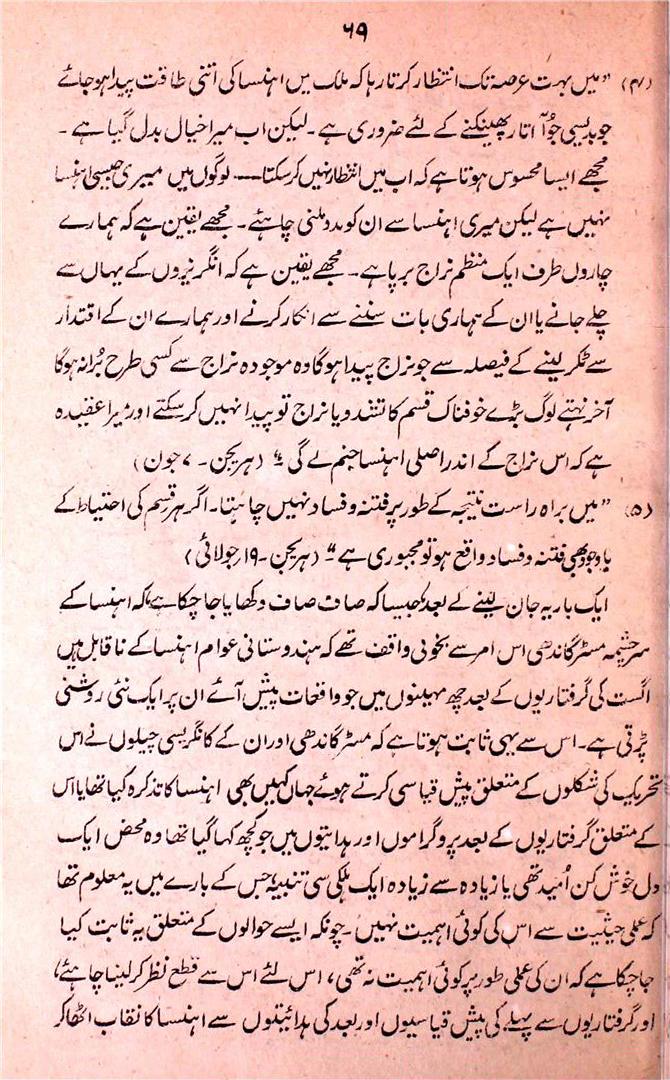 ۶۹
(۴) ”میں بہت عرصہ تک انتظار کرتا رہا کہ ملک میں اہنسا کی اتنی طاقت پیدا ہو جائے
جو بدیسی جُوآ اتار پھینکنے کے لئے ضروری ہے ۔ لیکن اب میرا خیال بدل گیا ہے ۔
مجھے ایسا محسوس ہوتا ہے کہ اب میں انتظار نہیں کر سکتا — لوگوں میں میری جیسی اہنسا
نہیں ہے لیکن میری اہنسا سے ان کو مدد ملنی چاہئے ۔ مجھے یقین ہے کہ ہمارے
چاروں طرف ایک منظم نراج برپا ہے ۔ مجھے یقین ہے کہ انگریزوں کے یہاں سے
چلے جانے یا ان کے ہماری بات سننے سے انکار کرنے اور ہمارے ان کے اقتدار
سے ٹکر لینے کے فیصلہ سے جو نراج پیدا ہوگا وہ موجودہ نراج سے کسی طرح بُرا نہ ہوگا
آخر نہتے لوگ بڑے خوفناک قسم کا تشدد یا نراج تو پیدا نہیں کر سکتے اور میرا عقیدہ
ہے کہ اس نراج کے اندر اصلی اہنسا جنم لے گی“ (ہریجن ۔ ۷ جون)
(۵) ”میں براہ راست نتیجہ کے طور پر فتنہ و فساد نہیں چاہتا ۔ اگر ہر قسم کی احتیاط کے
باوجود بھی فتنہ و فساد واقع ہو تو مجبوری ہے“ (ہریجن ۔ ۱۹ جولائی)
ایک بار یہ جان لینے کے بعد کہ جیسا کہ صاف صاف دکھایا جا چکا ہے کہ اہنسا کے
سر چشمہ مسٹر گاندھی اس امر سے بخوبی واقف تھے کہ ہندوستانی عوام اہنسا کے ناقابل ہیں
اگست کی گرفتاریوں کے بعد چھ مہینوں میں جو واقعات پیش آئے ان پر ایک نئی روشنی
پڑتی ہے ۔ اس سے یہی ثابت ہوتا ہے کہ مسٹر گاندھی اور ان کے کانگریسی چیلوں نے اس
تحریک کی شکلوں کے متعلق پیش قیاسی کرتے ہوئے جہاں کہیں بھی اہنسا کا تذکرہ کیا تھا یا اس
کے متعلق گرفتاریوں کے بعد پروگراموں اور ہدایتوں میں جو کچھ کہا گیا تھا وہ محض ایک
دل خوش کن اُمید تھی یا زیادہ سے زیادہ ایک ہلکی سی تنبیہ جس کے بارے میں یہ معلوم تھا
کہ عملی حیثیت سے اس کی کوئی اہمیت نہیں ۔ چونکہ ایسے حوالوں کے متعلق یہ ثابت کیا
جا چکا ہے کہ ان کی عملی طور پر کوئی اہمیت نہ تھی ، اس لئے اس سے قطع نظر کر لینا چاہئے ،
اور گرفتاریوں سے پہلے کی پیش قیاسیوں اور بعد کی ہدائیتوں سے اہنسا کا نقاب اٹھا کر